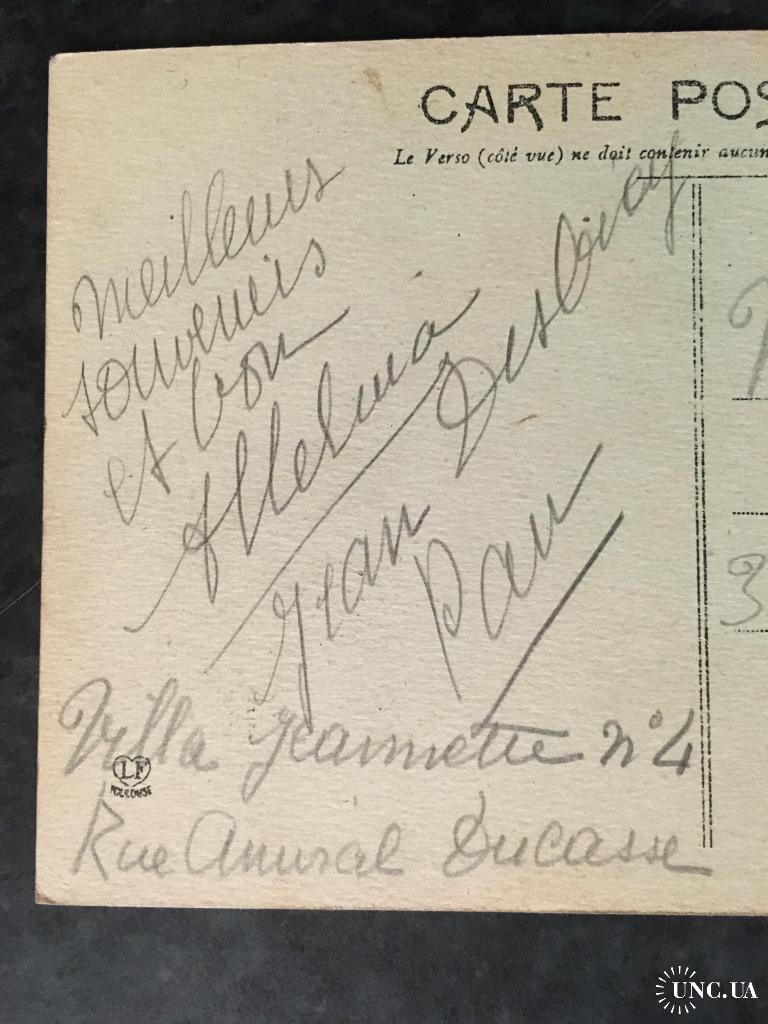 CARTE POS
Le Verso (côté vue) ne doit contenir aucun
meilleurs
souvenirs
et bon
Alleluia
Jean
Pau
Villa Jeannette n°4
Rue Amiral Ducasse
LF
TOULOUSE
3
UNC.UA